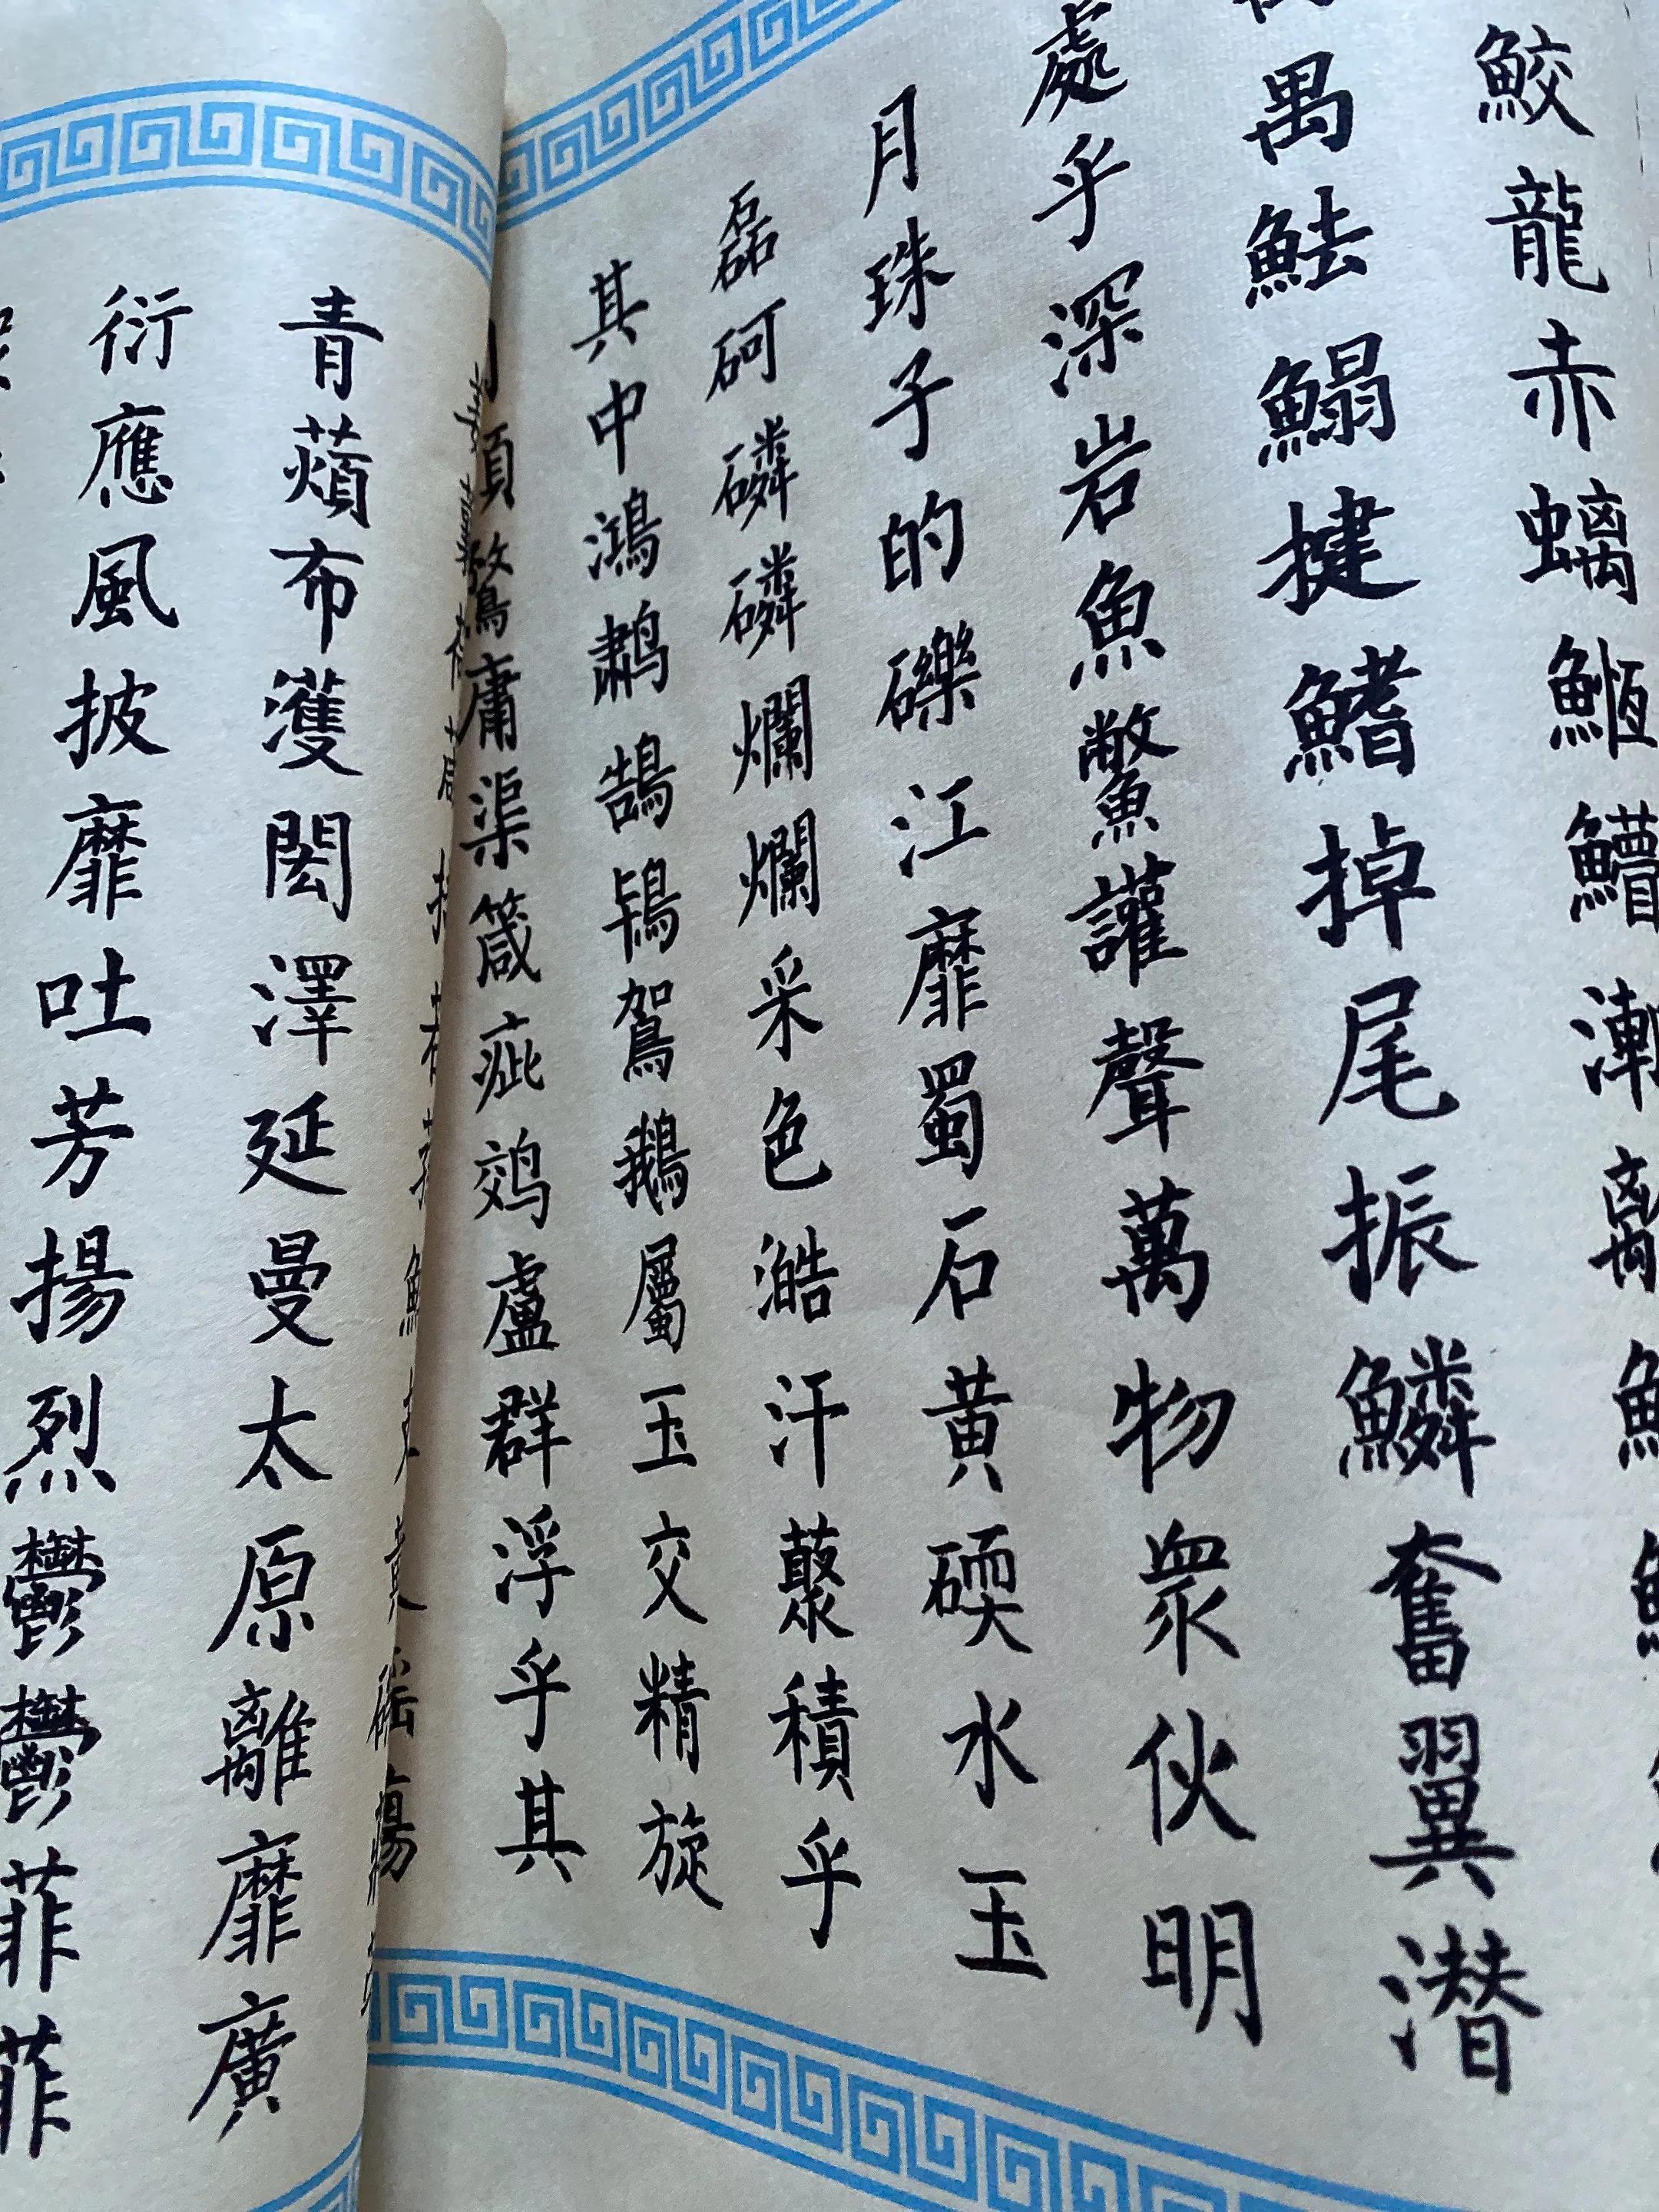 鮫龍赤螭䱭䲛漸離
禺魼鰨揵鰭掉尾振鱗奮翼潜
處乎深岩魚鱉讙聲萬物衆伙明
月珠子的礫江靡蜀石黃碝水玉
磊砢磷磷爛爛采色澔汗藂積乎
其中鴻鷫鵠鴇鴐鵝屬玉交精旋
目煩鶩庸渠箴疵鵁盧群浮乎其
青薠布濩閎澤延曼太原離靡廣
衍應風披靡吐芳揚烈鬱鬱菲菲